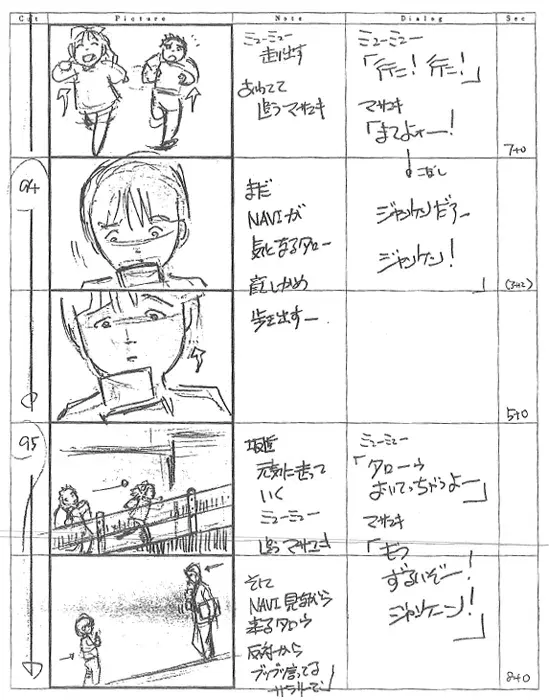 Cut Picture Note Dialog Sec
ミューミュー
走り出す
あわてて
追うマサユキ
ミューミュー
「行こ!行こ!」
マサユキ
「まてよォー!
7+0
94
まだ
NAVIが
気になるタロー
歩き出すー
こぼし
ジャンケンだろー
ジャンケン!
」
(3+12)
5+0
95
坂道
元気に走って
いく
ミューミュー
追うマサユキ
ミューミュー
「タローゥ
おいてっちゃうよー」
マサユキ
「もう
ずるいぞー!
ジャンケーン!
」
そこに
NAVI見ながら
来るタロウ
反対から
ブツブツ言ってる
8+0